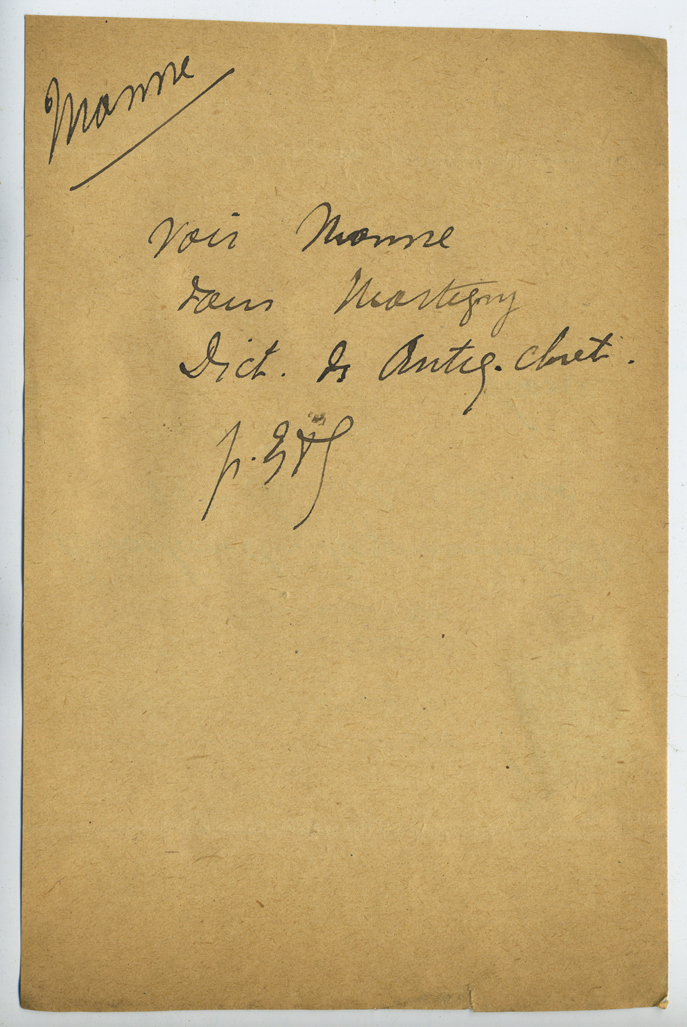 Manne
voir Manne
dans Martigny
Dict. ds Antiq. chret.
p.